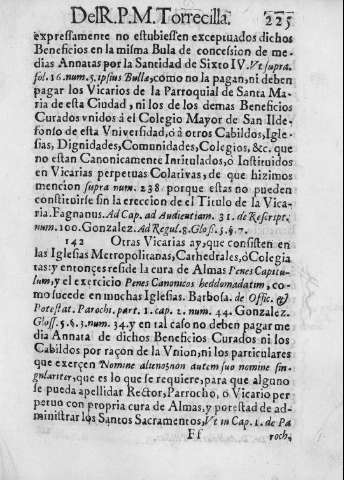 Del R. P. M. Torrecilla. 225
expressamente no estubiessen exceptuados dichos
Beneficios en la misma Bula de concession de me-
dias Annatas por la Santidad de Sixto IV. Vt supra.
fol. 16. num. 5. ipsius Bulla, como no la pagan, ni deben
pagar los Vicarios de la Parroquial de Santa Ma-
ria de esta Ciudad, ni los de los demas Beneficios
Curados vnidos à el Colegio Mayor de San Ilde-
fonso de esta Vniversidad, ò à otros Cabildos, Igle-
sias, Dignidades, Comunidades, Colegios, &c. que
no estan Canonicamente Intitulados, ò Instituidos
en Vicarias perpetuas Colativas, de que hizimos
mencion supra num. 238 porque estas no pueden
constituirse sin la ereccion de el Titulo de la Vica-
ria. Fagnanus. Ad Cap. ad Audientiam. 31. de Rescript.
num. 100. Gonzalez. Ad Regul. 8. Gloss. 5. §. 7.
142 Otras Vicarias ay, que consisten en
las Iglesias Metropolitanas, Cathedrales, ò Colegia
tas: y entonçes reside la cura de Almas Penes Capitu-
lum, y el exercicio Penes Canonicos heddomadatim, co-
mo sucede en muchas Iglesias. Barbosa. de Offic. &
Potestat. Parochi. part. 1. cap. 2. num. 44. Gonzalez.
Gloss. 5. §. 3. num. 34. y en tal caso no deben pagar me
dia Annata de dichos Beneficios Curados ni los
Cabildos por raçon de la Vnion, ni los particulares
que exerçen Nomine alieno, non autem suo nomine sin-
gulariter, que es lo que se requiere, para que alguno
se pueda apellidar Rector, Parrocho, ò Vicario per
petuo con propria cura de Almas, y potestad de ad-
ministrar los Santos Sacramentos, Vt in Cap. 1. de Pa
Ff roch.